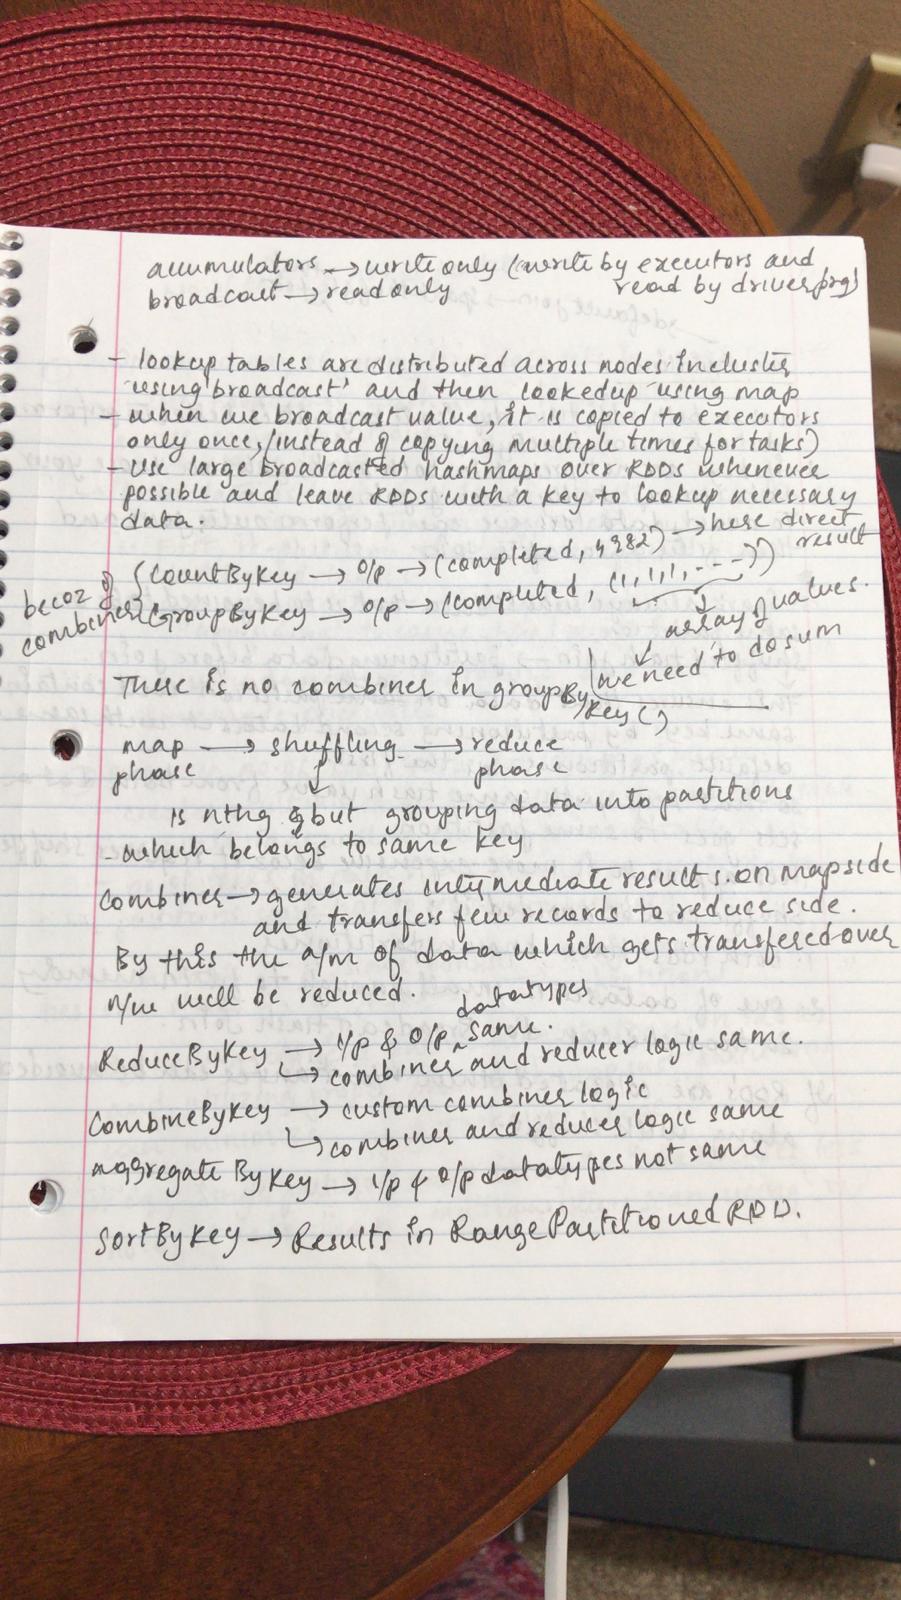 accumulators → write only (write by executors and
broadcast → read only read by driver prg)
- lookup tables are distributed across nodes in cluster
'using broadcast' and then lookedup using map
- when we broadcast value, it is copied to executors
only once, (instead of copying multiple times for tasks)
- Use large broadcasted hashmaps over RDDs whenever
possible and leave RDDs with a key to lookup necessary
data.
becoz of combiner { CountByKey → o/p → (completed, 4982) → here direct result
GroupByKey → o/p → (completed, (1,1,1,---))
array of values.
we need to do sum
There is no combiner in groupBy
Key()
map → shuffling → reduce
phase phase
is nthg but grouping data into partitions
which belongs to same key
Combiner → generates intermediate results on mapside
and transfers few records to reduce side.
By this the a/m of data which gets transfered over
n/w will be reduced.
ReduceByKey → i/p & o/p datatypes same.
↳ combiner and reducer logic same.
CombineByKey → custom combiner logic
↳ combiner and reducer logic same
aggregate By Key → i/p & o/p datatypes not same
SortByKey → Results in Range Partitioned RDD.